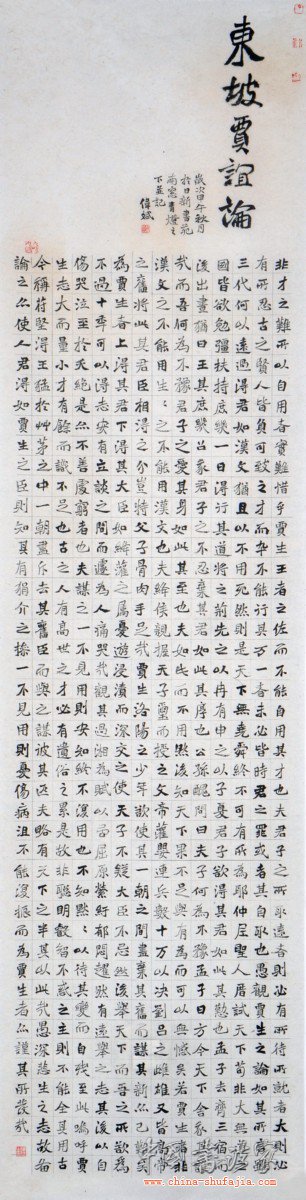 東坡賈誼論
歲次甲午秋月
於日新書苑
南窓青燈之
下並記
偉斌
非才之難所以自用者實難惜乎賈生王者之佐而不能自用其才也夫君子之所取遠者則必有所待所就者大則必
有所忍古之賢人皆負可致之才而卒不能行其万一者未必皆時君之罪或者其自取也愚觀賈生之論如其所言雖
三代何以遠過得君如漢文猶且以不用死然則是天下無堯舜終不可有所為耶仲尼聖人歷試天下苟非大無道之
國皆欲勉彊扶持庶幾一日得行其道將之荊先之以冉有申之以子夏君子之欲得其君如此其勤也孟子去齊三宿而
後出晝猶曰王其庶幾召我君子之不忍棄其君如此其厚也公孫醜問曰夫子何為不豫孟子曰方今天下舍我其誰
哉而吾何為不豫君子之愛其身如此其至也夫如此而不用然後知天下果不足與有為而可以無憾矣若賈生者非
漢文之不能用生生之不能用漢文也夫絳侯親握天子璽而授之文帝灌嬰連兵數十万以決劉呂之雌雄又皆高帝
之舊將此其君臣相得之分豈特父子骨肉手足哉賈生洛陽之少年欲使其一朝之間盡棄其舊而謀其新亦已難矣
為賈生者上得其君下得其大臣如絳灌之屬優遊浸漬而深交之使天子不疑大臣不忌然後舉天下而唯吾之所欲為
不過十年可以得志安有立談之間而遽為人痛哭哉觀其過湘為賦以弔屈原縈紆鬱悶趯然有遠舉之志其後以自
傷哭泣至於夭絕是亦不善處窮者也夫謀之一不見用則安知終不復用也不知默默以待其變而自殘至此嗚呼賈
生志大而量小才有餘而識不足也古之人有高世之才必有遺俗之累是故非聰明睿智不惑之主則不能全其用古
今稱苻堅得王猛於草茅之中一朝盡斥去其舊臣而與之謀彼其匹夫略有天下之半其以此哉愚深悲生之志故備
論之亦使人君得如賈生之臣則知其有狷介之操一不見用則憂傷病沮不能復振而為賈生者亦謹其所發哉
www.china-shufajia.com